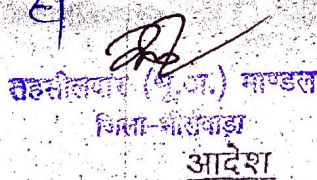 तहसीलदार (भू.अ.) माण्डल
जिला-भीलवाड़ा
आदेश